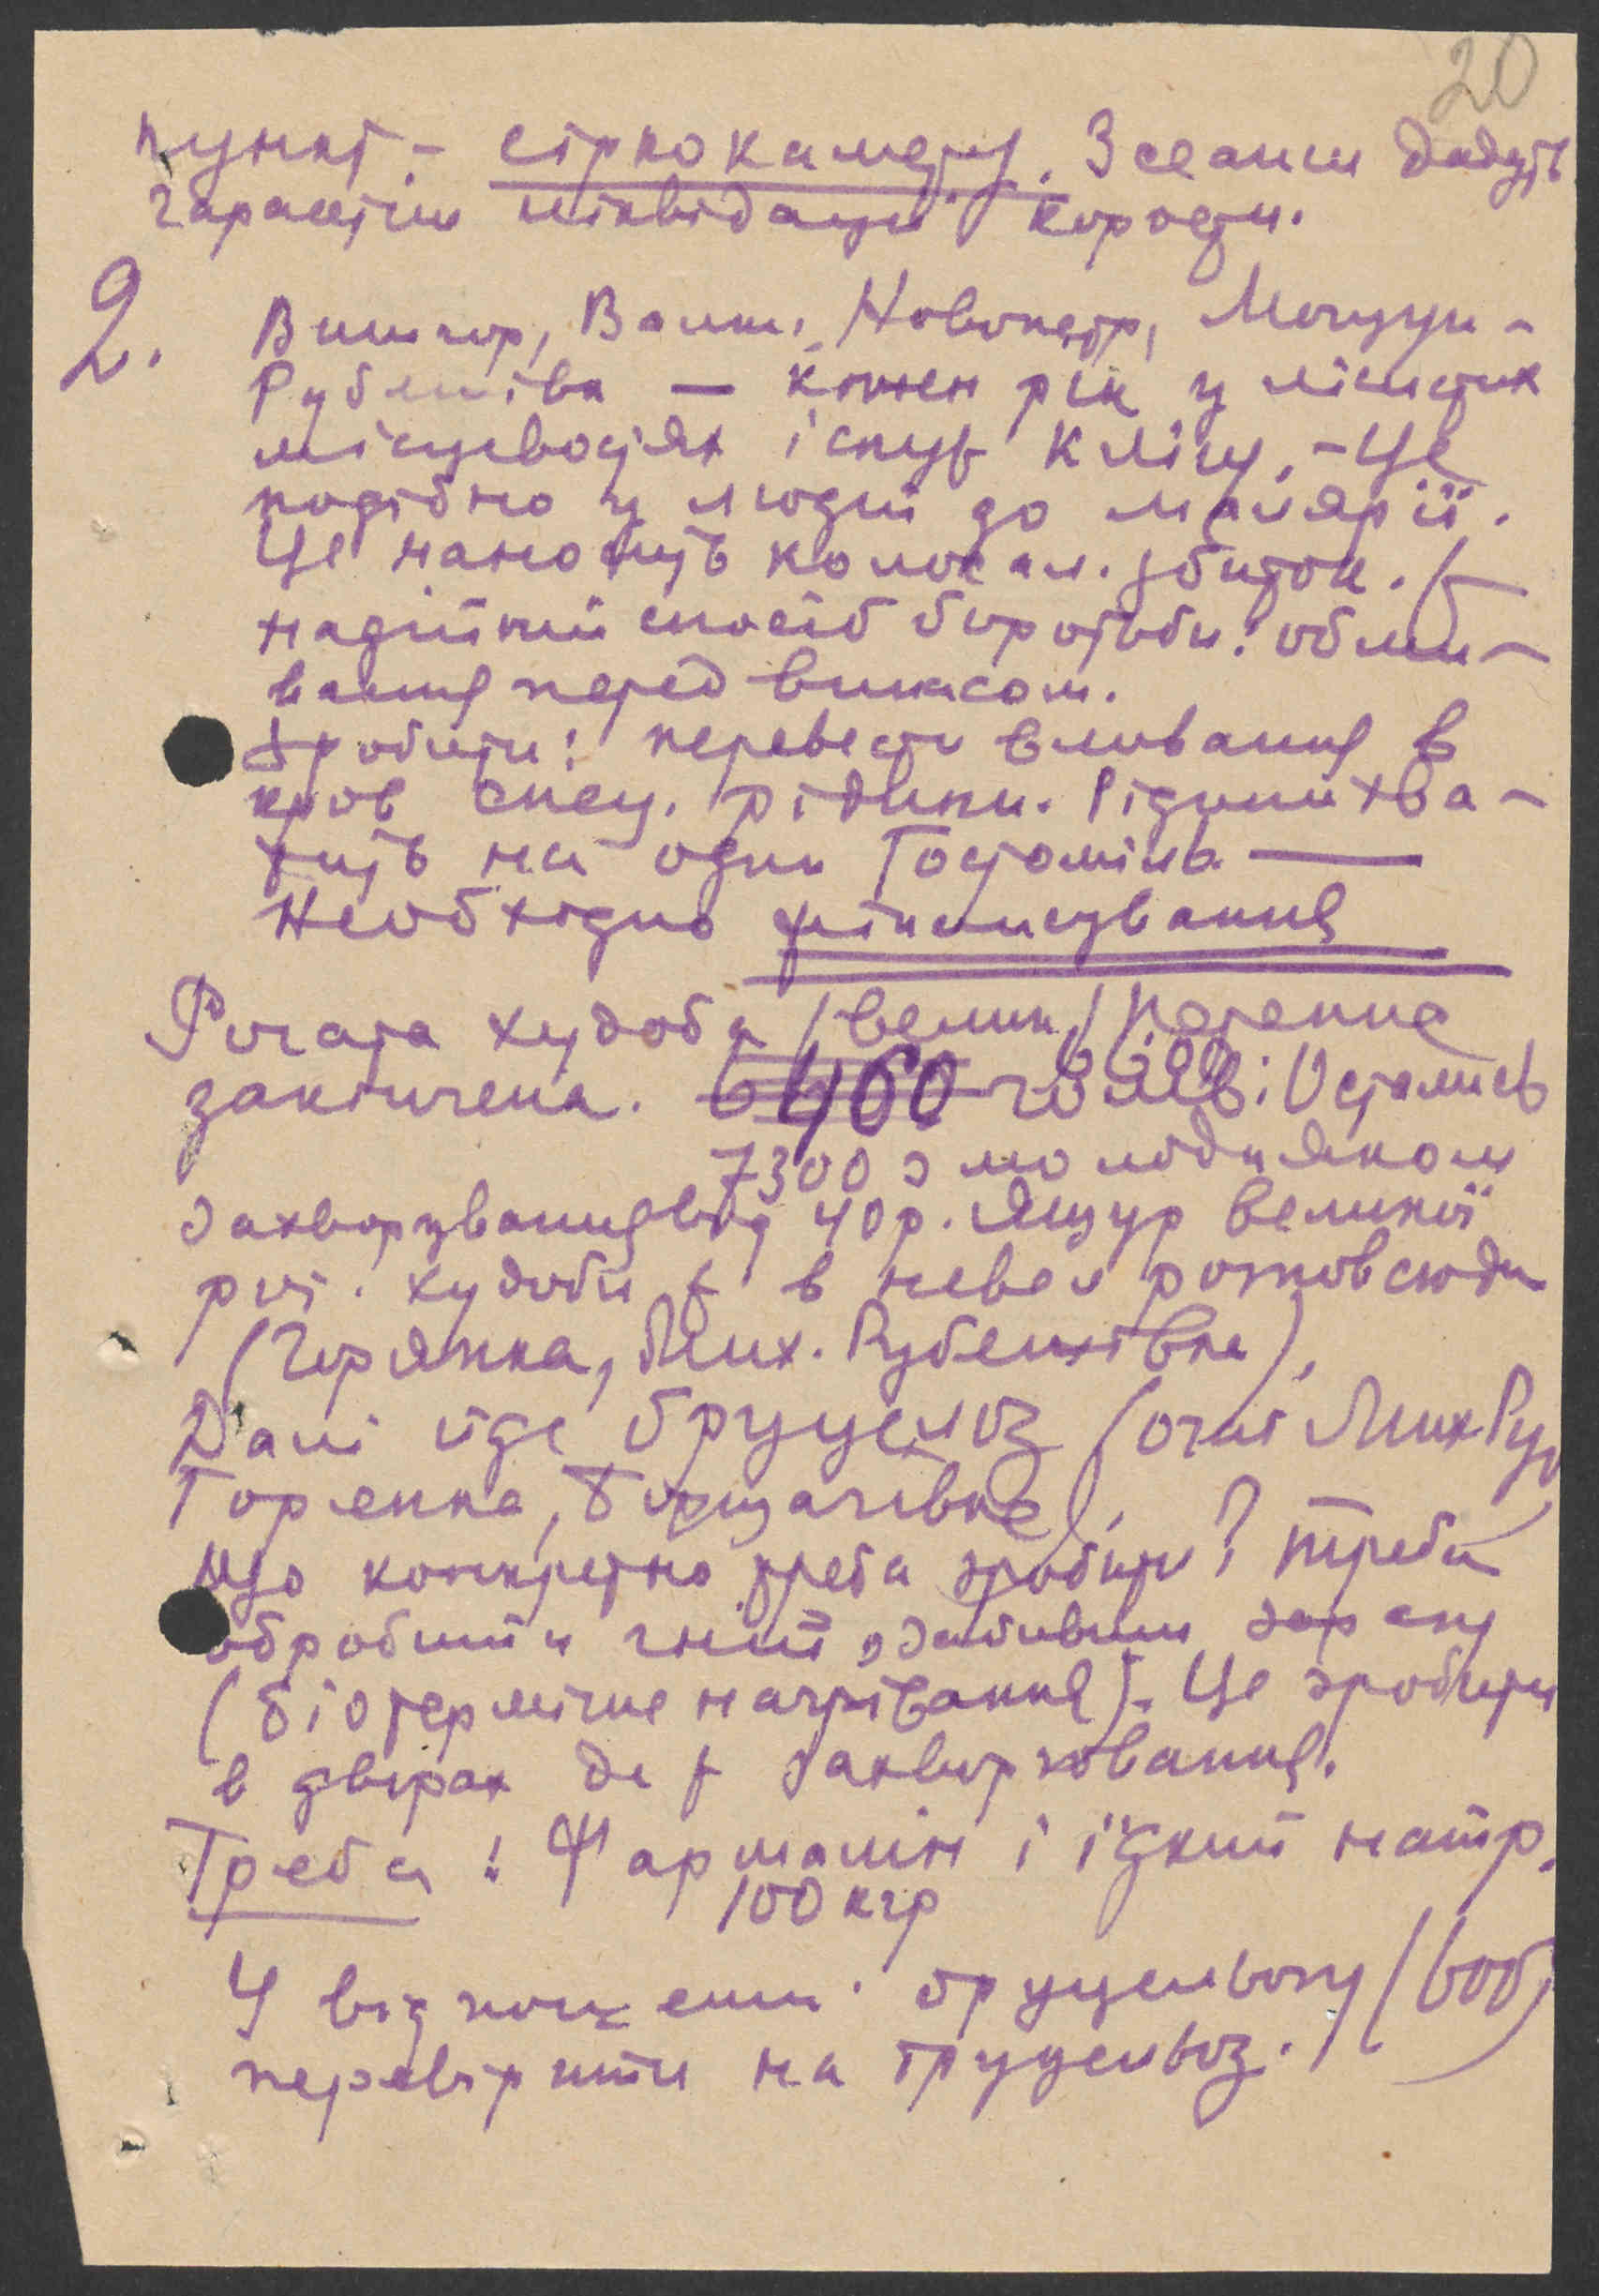 20
пункт - сіркокамеру. 3 сеанси дадуть
гарантію ліквідації корости.
2. Вишгор, Валк., Новопетр, Мощун -
Рубежівка — кожен рік у лісистих
місцевостях існує кліщ, - Це
подібно у людей до малярії.
Це наносить колосал. збиток. Є
надійний спосіб боротьби: обми-
вання перед випасом.
Зробити: перевести вливання в
кров спец. рідини. Рідини хва-
тить на один Гостоміль —
Необхідно фінансування
Рогата худоба /велик./
закінчена. 6460 6600 голів: Остались
7300 з молодняком
Захворювання від 40 р. Ящур великої
рог. худоби є в невел розповсюдж
(Горянка, Мих. Рубежівка),
Далі йде бруцельоз (очаг Мих-Руб
Горенка, Борщагівка),
Що конкретно треба зробити? Треба
обробити гній, забивши заразу
(біотермічне нагрівання). Це зробити
в дворах де є захворювання.
Треба: Формалін і їдкий натр.
100 кгр
У відношенні бруцельозу /600/
перевірити на бруцельоз.